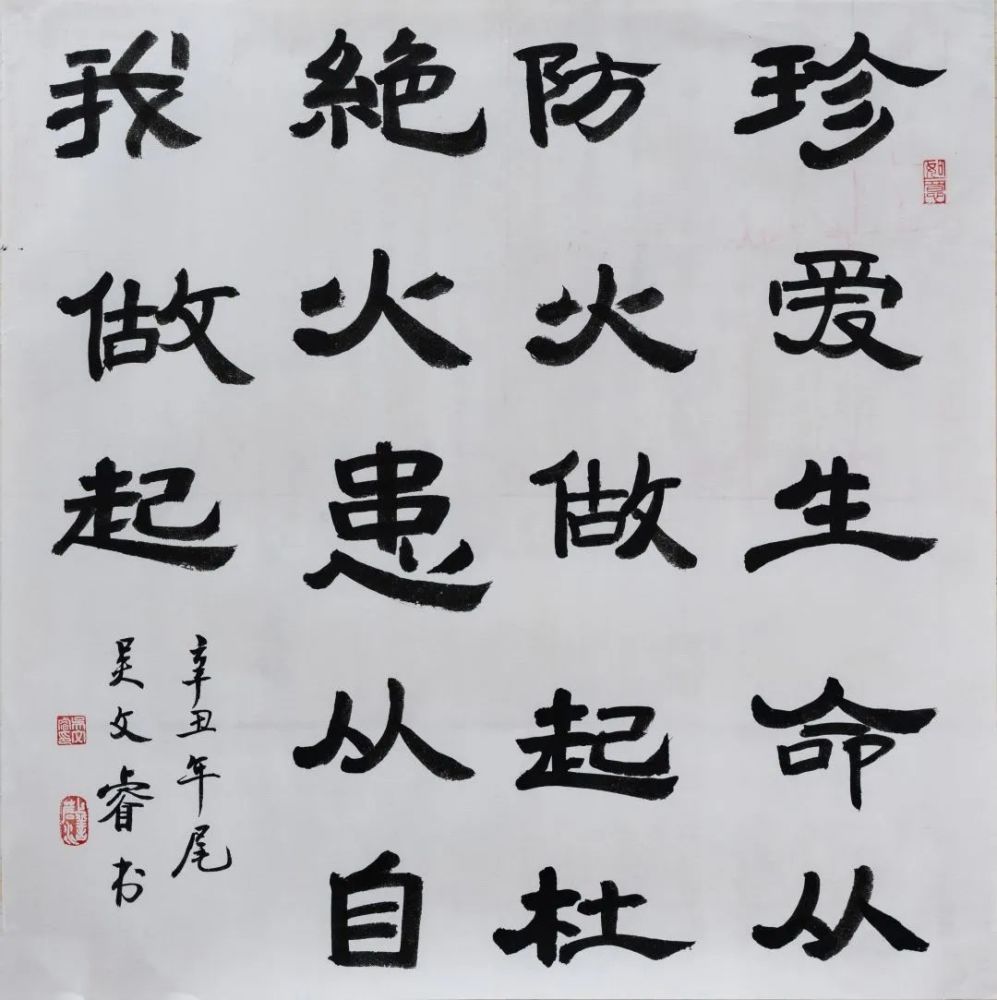 珍爱生命从
防火做起杜
絶火患从自
我做起
辛丑年尾
吴文睿书
如意